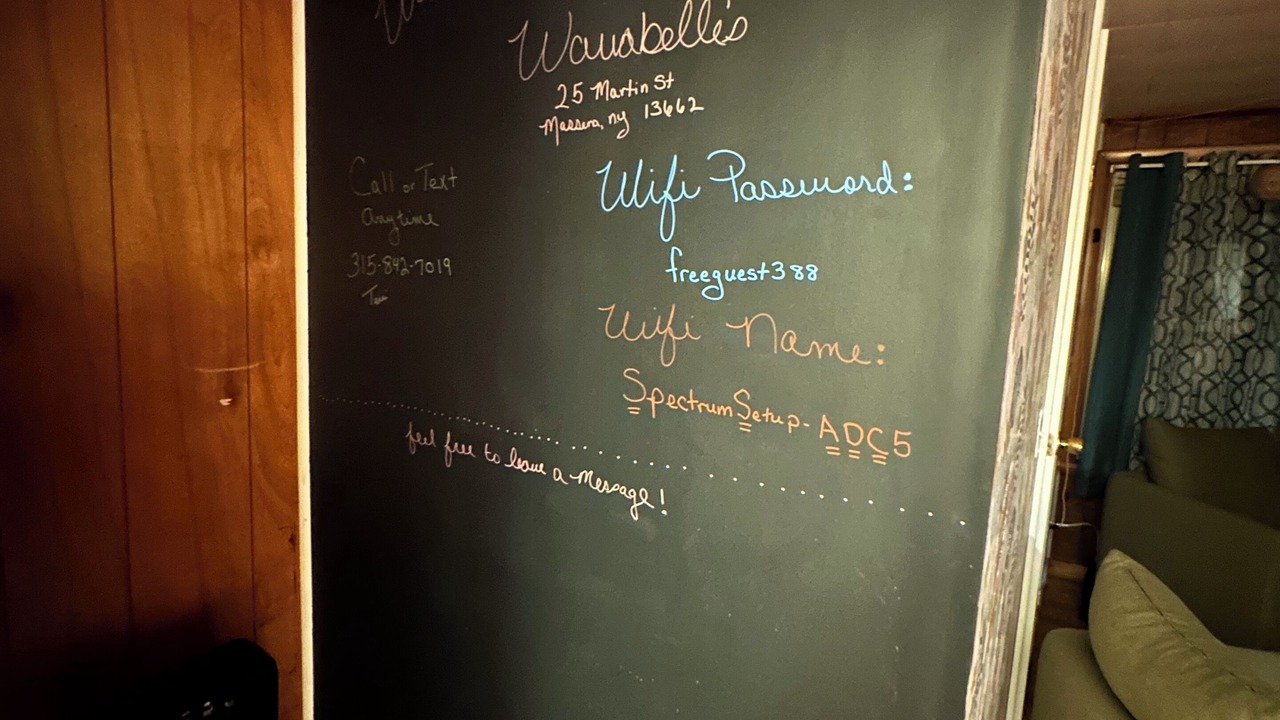 Wanabelle's
25 Martin St
Massena, ny 13662
Call or Text
Anytime
315-842-7019
Wifi Password:
freeguest388
Wifi Name:
SpectrumSetup-ADC5
feel free to leave a message!